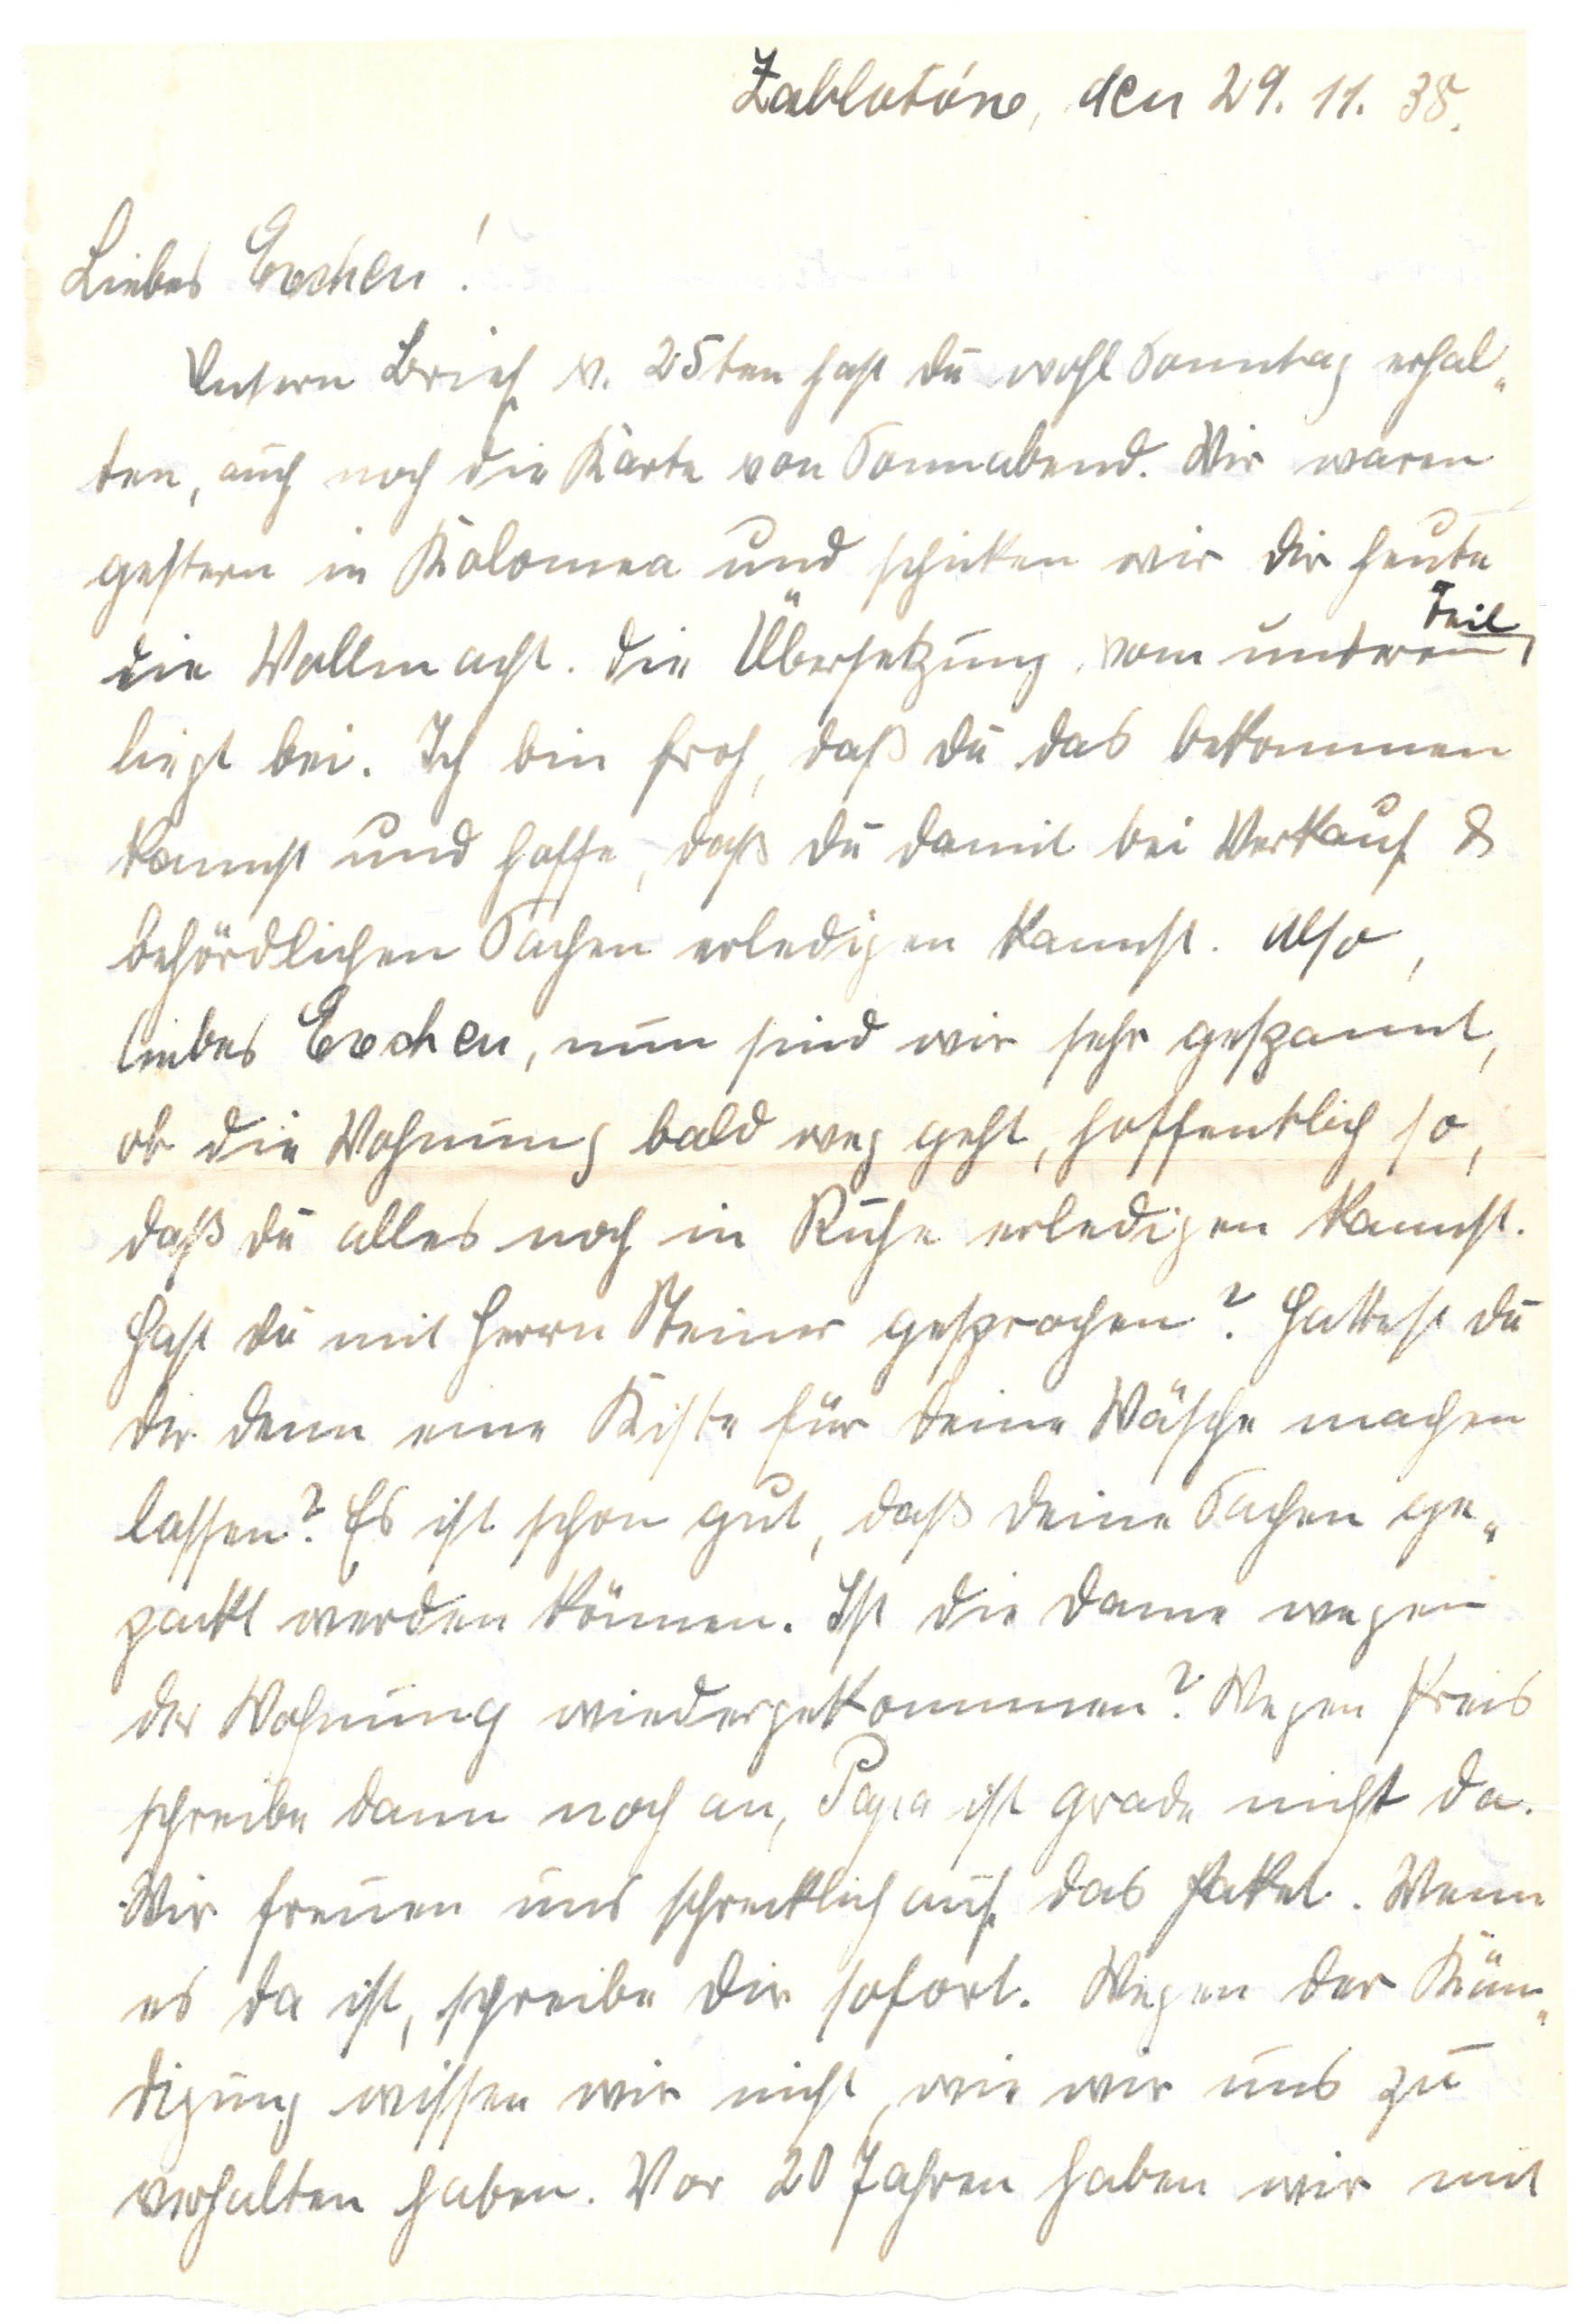 Zablotóne, den 29. 11. 38.
Liebes Evchen!
Unsern Brief v. 25ten hast du wohl Sonntag erhal-
ten, auch noch die Karte von Sonnabend. Wir waren
gestern in Kolomea und schicken wir dir heute
die Vollmacht. Die Übersetzung vom unteren Teil
liegt bei. Ich bin froh, daß du das bekommen
kannst und hoffe, daß du damit bei Verkauf &
behördlichen Sachen erledigen kannst. Also,
liebes Evchen, nun sind wir sehr gespannt,
ob die Wohnung bald weg geht, hoffentlich so,
daß du alles noch in Ruhe erledigen kannst.
Hast du mit Herrn Steiner gesprochen? Hattest du
dir denn eine Kiste für deine Wäsche machen
lassen? Es ist schon gut, daß deine Sachen ge-
packt werden können. Ist die Dame wegen
der Wohnung wiedergekommen? Wegen Preis
schreibe dann noch an, Papa ist grade nicht da.
Wir freuen uns schrecklich auf das Paket. Wenn
es da ist, schreibe dir sofort. Wegen der Kün-
digung wissen wir nicht, wie wir uns zu
verhalten haben. Vor 20 Jahren haben wir mit